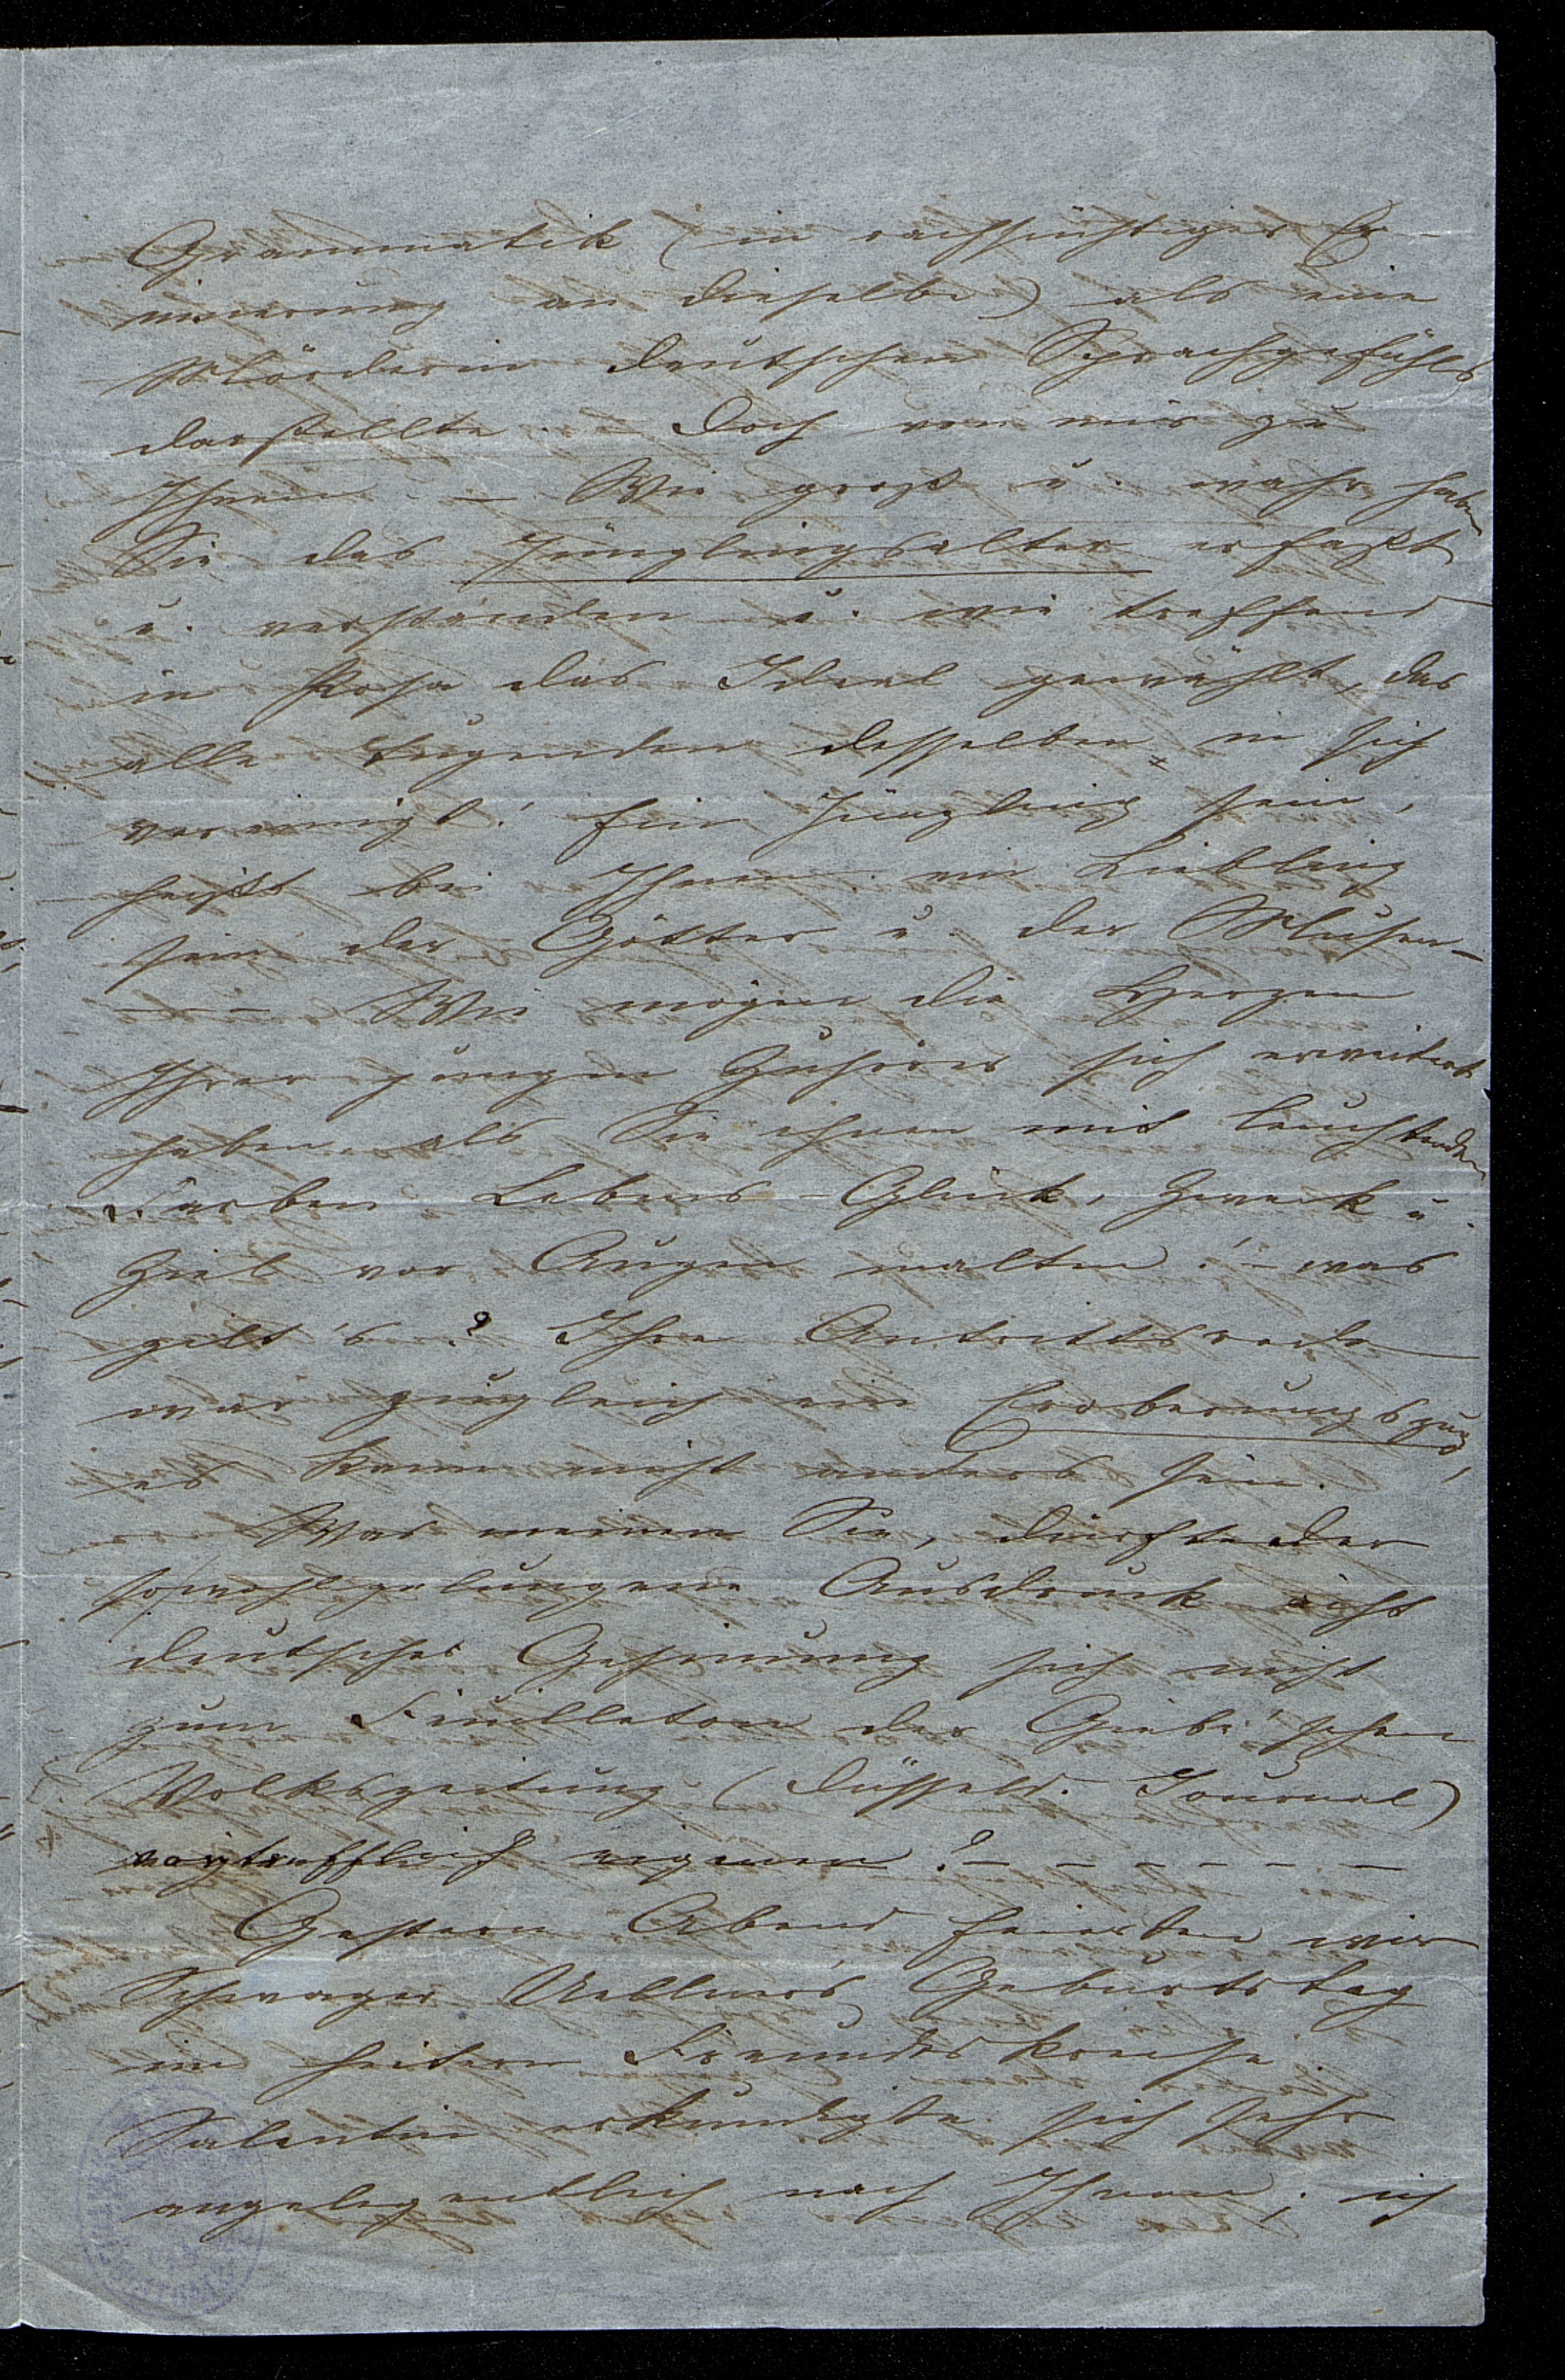 Grammatik (in rachsüchtiger Er-
innerung an dieselbe) als eine
Mörderin deutschen Sprachgefühls
darstellte. – Doch von mir zu
Ihnen. – Wie groß u. wahr haben
Sie das Jünglingsalter erfaßt
u. verstanden u. wie treffend
in Posa das Ideal gewählt, das
alle Tugenden desselben in sich
vereinigt! Ein Jüngling sein,
heißt bei Ihnen: ein Liebling
sein der Götter u. der Musen –
– – – Wie mögen die Herzen
Ihrer jungen Zuhörer sich erweitert
haben, als Sie ihnen mit leuchtenden
Farben Lebens-Glück, Zweck u.
Ziel vor Augen malten! – was
gilt's? Ihre Antrittsrede
war zugleich ein Eroberungszug,
es kann nicht anders sein.
Was meinen Sie, dürfte der
so wohlgelungene Ausdruck ächt
deutscher Gesinnung sich nicht
zum Feuilleton der 
Volkszeitung (Düsseld. Journal)
vortrefflich eignen? – – – – – –
Gestern Abend feierten wir
Schwager Geburtstag
im heitern Freundeskreise.
Salentin erkundigte sich sehr
angelegentlich nach Ihnen; ich